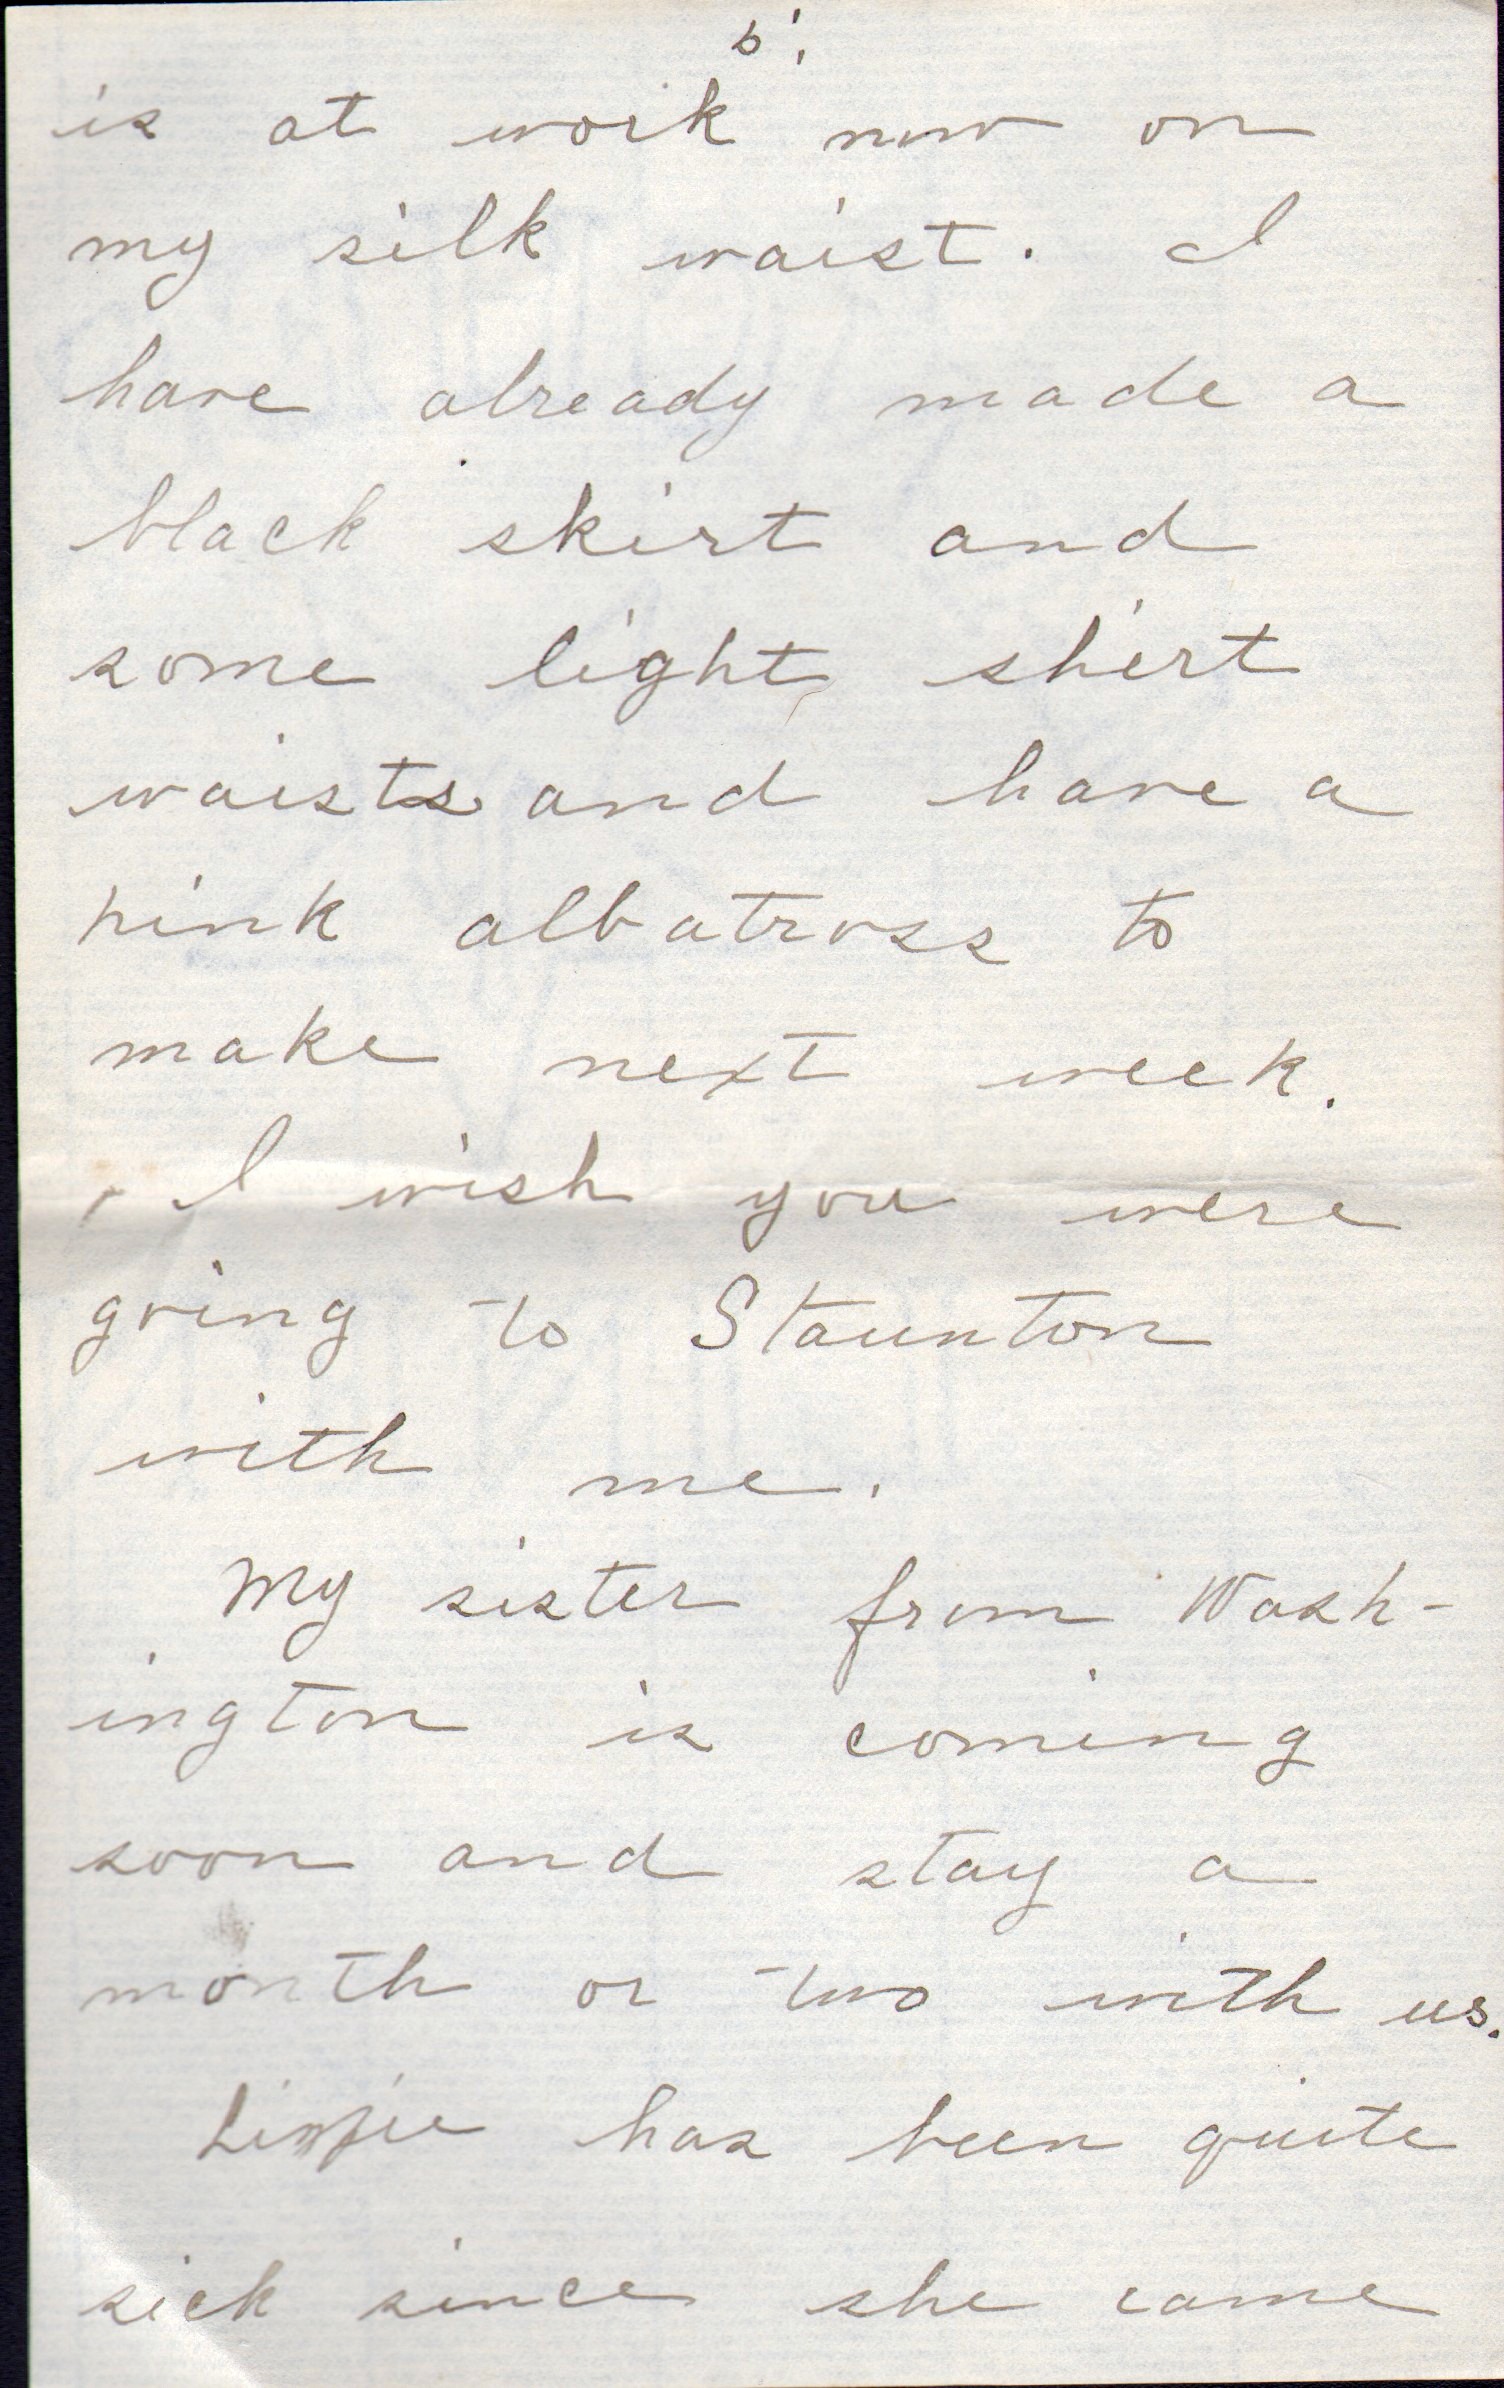 6.
is at work now on
my silk waist. I
have already made a
black skirt and
some light shirt
waists and have a
pink albatross to
make next week.
I wish you were
going to Staunton
with me.
My sister from Wash-
ington is coming
soon and stay a
month or two with us.
Lizzie has been quite
sick since she came